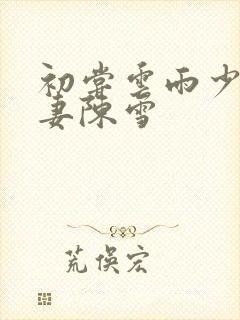 初尝雲雨少
妻陳雪
荒俁宏